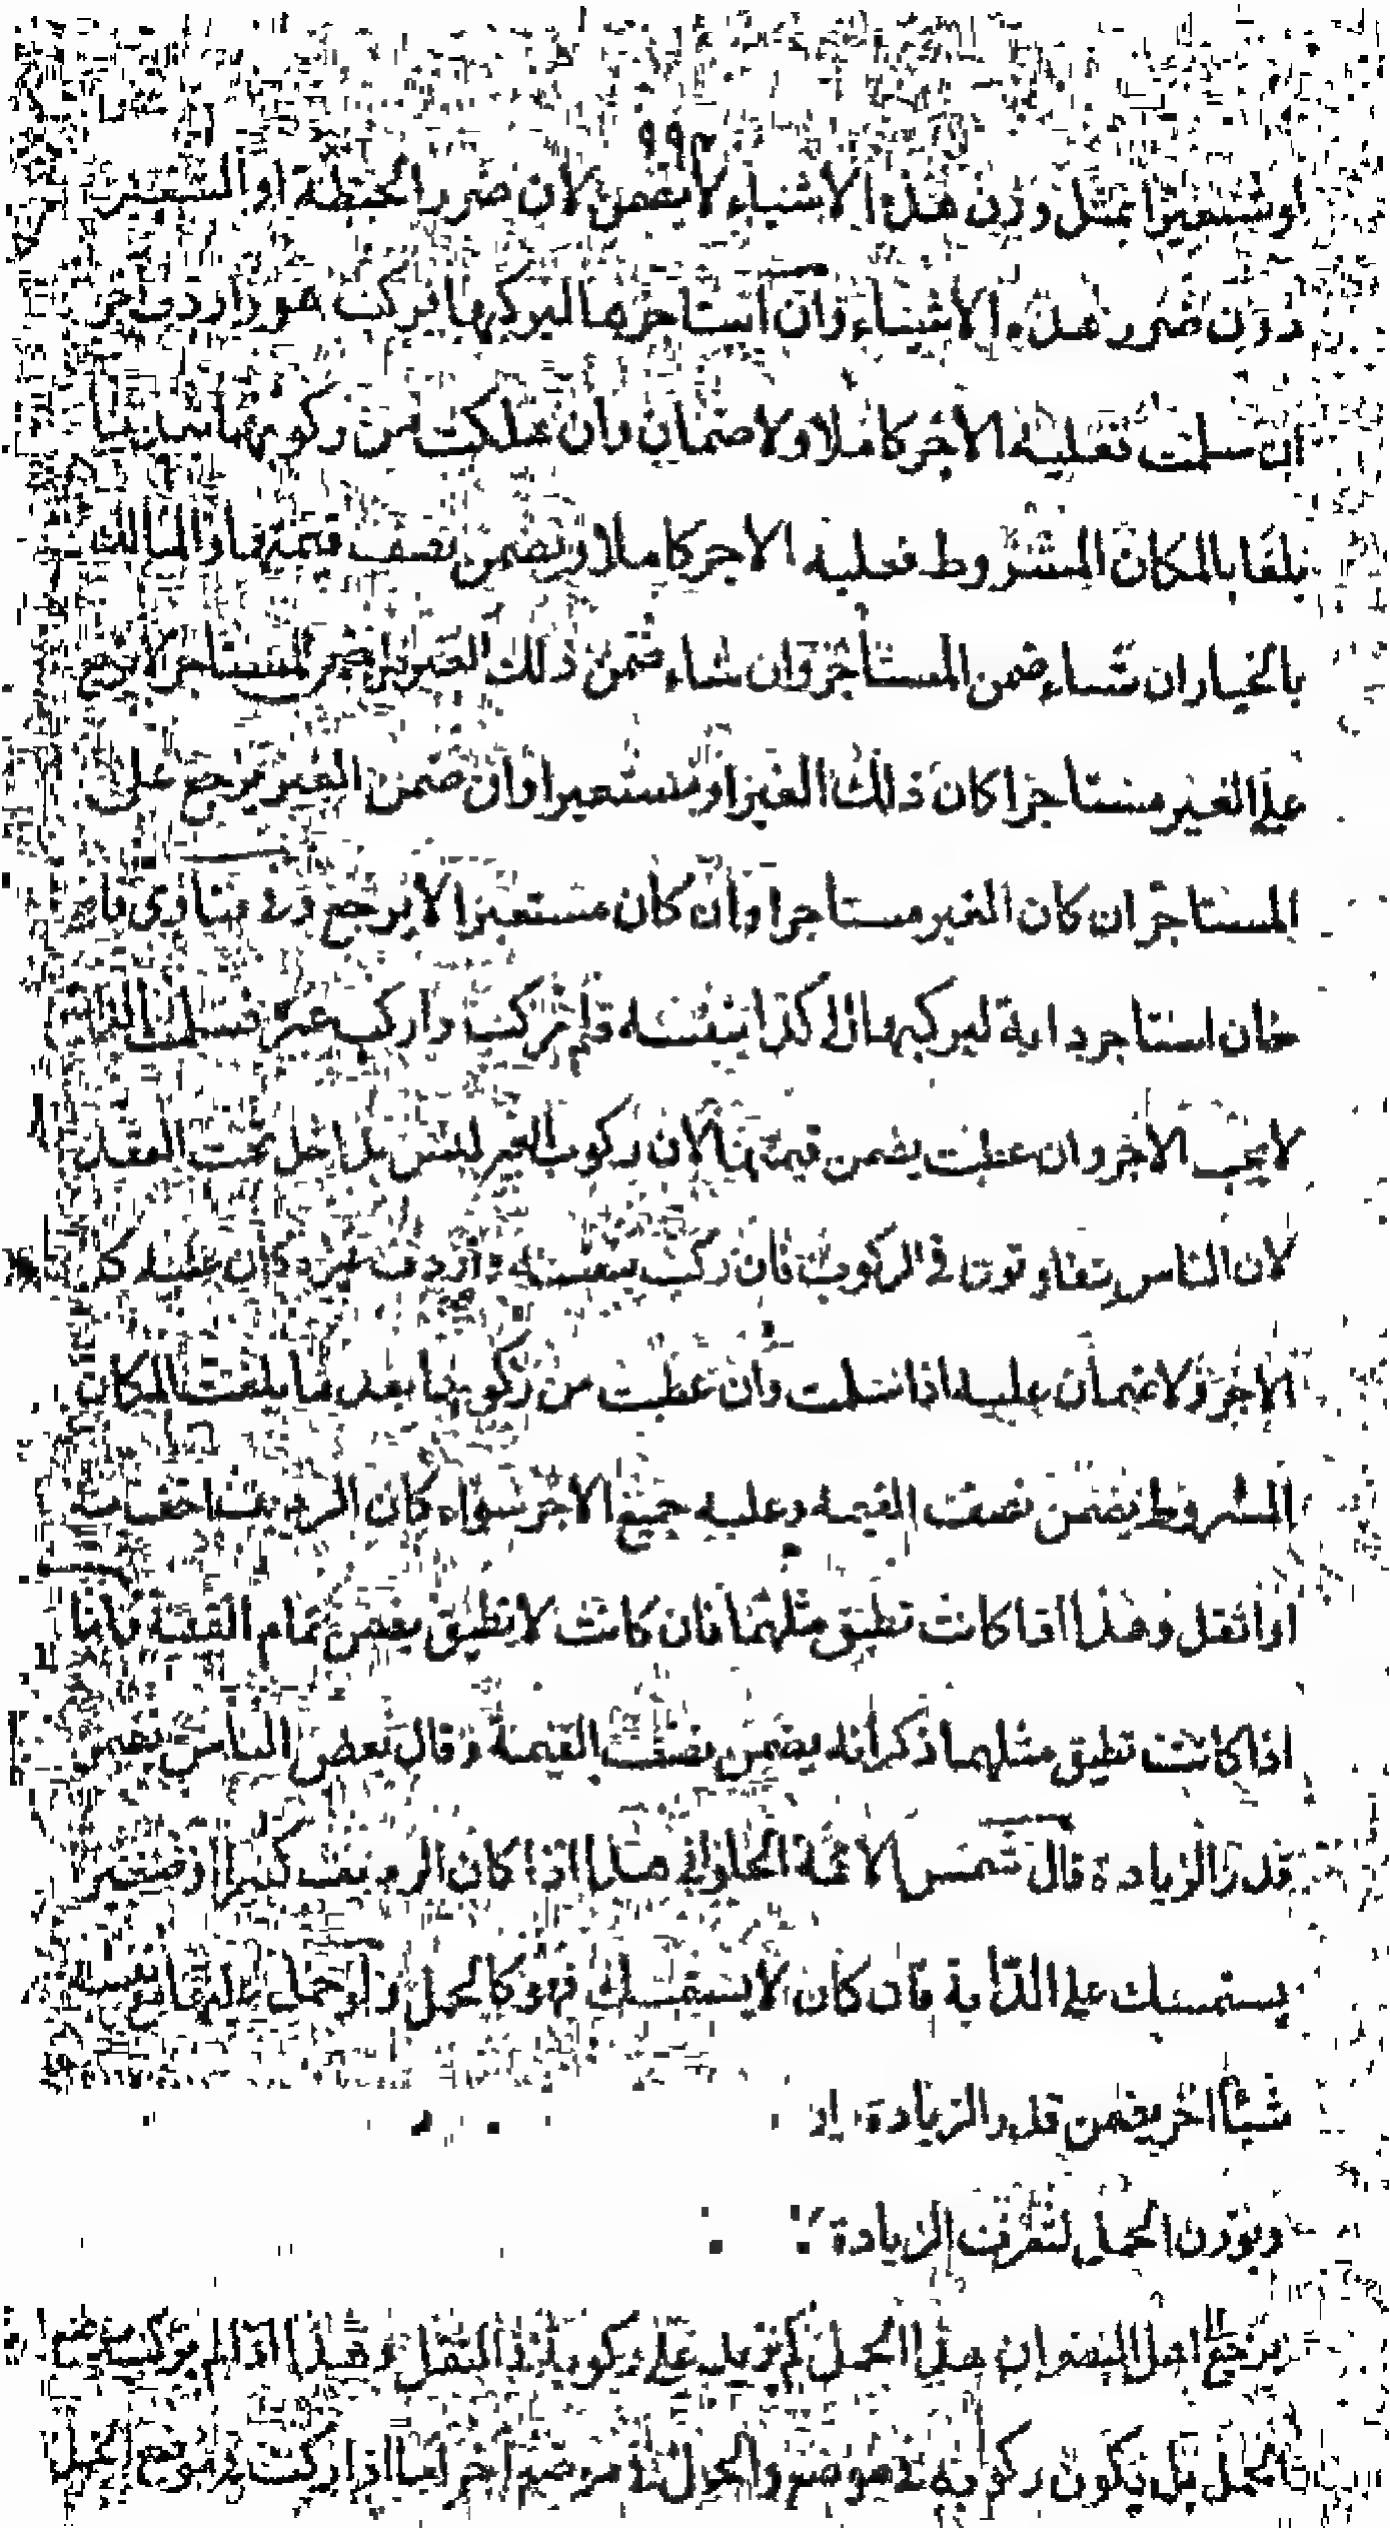 او شعيرا بمثل وزن هذه الاشياء لا يضمن لان ضرر الحنطة او الشعير
دون ضرر هذه الاشياء وان استاجرها ليركبها فركب هو واردف اخر
ان سلمت فعليه الاجر كاملا ولا ضمان وان هلكت من ركوبهما
بلغا بالمكان المشروط فعليه الاجر كاملا ويضمن نصف قيمتها والمالك
بالخيار ان شاء ضمن المستأجر وان شاء ضمن ذلك الغير المستاجر لا يرجع
على الغير مستاجرا كان ذلك الغير او مستعيرا وان ضمن الغير يرجع على
المستاجر ان كان الغير مستاجرا وان كان مستعيرا لا يرجع وفي فتاوى قا
خان استاجر دابة ليركبها الى كذا بنفسه فلم يركب واركب غيره فسلمت الدابة
لا يجب الاجر وان عطبت يضمن قيمتها لان ركوب الغير ليس بداخل تحت العقد
لان الناس يتفاوتون في الركوب فان ركب بنفسه واردف غيره كان عليه كل
الاجر ولا ضمان عليه اذا سلمت وان عطبت من ركوبهما بعد ما بلغت المكان
المشروط يضمن نصف القيمة وعليه جميع الاجر سواء كان الرديف اخف
او اثقل وهذا اذا كانت تطيق مثلهما فان كانت لا تطيق يضمن تمام القيمة وانما
اذا كانت تطيق مثلهما ذكر انه يضمن نصف القيمة وقال بعض الناس يضمن
قدر الزيادة قال شمس الائمة الحلواني هذا اذا كان الرديف كبيرا او صغيرا
يستمسك على الدابة فان كان لا يستمسك فهو كالحمل ولو حمل عليها مع نفسه
شيئا اخر يضمن قدر الزيادة
ويوزن الحمل لتعرف الزيادة
يرجع اهل البصر ان هذا الحمل كم يزيد على ركوبه في الثقل وهذا اذا لم يركب موضع
الحمل بل يكون ركوبه في موضع والحمل في موضع اخر اما اذا ركب في موضع الحمل